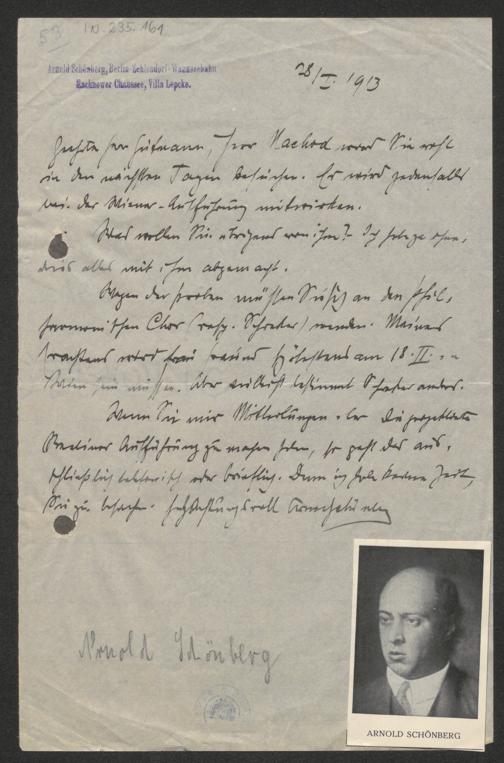 53
I.N. 235.161
Arnold Schönberg, Berlin-Zehlendorf-Wannseebahn
Machnower Chaussee, Villa Lepcke.
28/I. 1913
Geehrter Herr Gutmann, Herr Nachod wird Sie wohl
in den nächsten Tagen besuchen. Er wird jedenfalls
bei der Wiener-Aufführung mitwirken.
Was wollen Sie übrigens von ihm? Ich habe ja schon
alles mit ihm abgemacht.
Wegen der Proben müssen Sie sich an den Phil-
harmonischen Chor (resp. Schreker) wenden. Meines
Erachtens wird er spätestens am 18. II. in
Wien sein müssen. Aber vielleicht bestimmt Schreker anders.
Wenn Sie mir Mitteilungen über die projektierte
Berliner Aufführung zu machen haben, so geht das aus-
schließlich telefonisch oder brieflich. Denn ich habe keine Zeit,
Sie zu besuchen. Hochachtungsvoll Arnold Schönberg
Arnold Schönberg
ARNOLD SCHÖNBERG